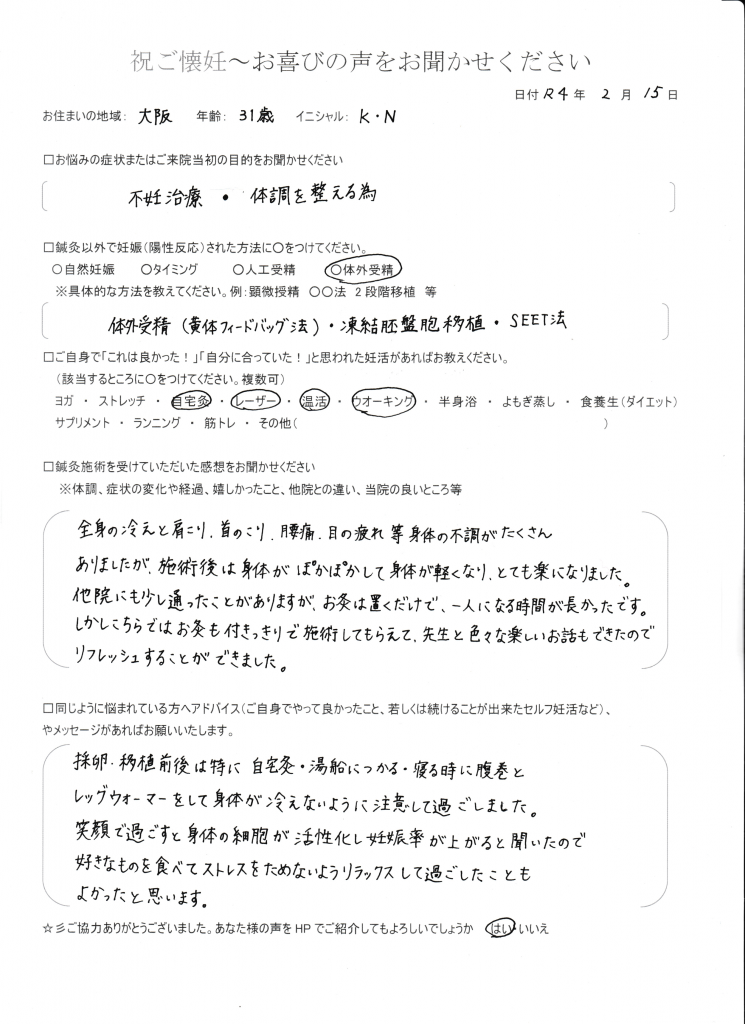 祝ご懐妊～お喜びの声をお聞かせください
日付 R4 年 2 月 15 日
お住まいの地域: 大阪 年齢: 31歳 イニシャル: K・N
□お悩みの症状またはご来院当初の目的をお聞かせください
不妊治療 ・ 体調を整える為
□鍼灸以外で妊娠(陽性反応)された方法に○をつけてください。
○自然妊娠 ○タイミング ○人工受精 ○体外受精
※具体的な方法を教えてください。例:顕微授精 ○○法 2段階移植 等
体外受精 (黄体フィードバッグ法)・凍結胚盤胞移植・SEET法
□ご自身で「これは良かった!」「自分に合っていた!」と思われた妊活があればお教えください。
(該当するところに○をつけてください。複数可)
ヨガ ・ ストレッチ ・ 自宅灸 ・ レーザー ・ 温活 ・ ウオーキング ・ 半身浴 ・ よもぎ蒸し ・ 食養生(ダイエット)
サプリメント ・ ランニング ・ 筋トレ ・ その他( )
□鍼灸施術を受けていただいた感想をお聞かせください
※体調、症状の変化や経過、嬉しかったこと、他院との違い、当院の良いところ等
全身の冷えと肩こり、首のこり、腰痛、目の疲れ等身体の不調がたくさん
ありましたが、施術後は身体がぽかぽかして身体が軽くなり、とても楽になりました。
他院にも少し通ったことがありますが、お灸は置くだけで、一人になる時間が長かったです。
しかしこちらではお灸も付きっきりで施術してもらえて、先生と色々な楽しいお話もできたので
リフレッシュすることができました。
□同じように悩まれている方へアドバイス(ご自身でやって良かったこと、若しくは続けることが出来たセルフ妊活など)、
やメッセージがあればお願いいたします。
採卵・移植前後は特に 自宅灸・湯船につかる・寝る時に腹巻と
レッグウォーマーをして身体が冷えないように注意して過ごしました。
笑顔で過ごすと身体の細胞が活性化し妊娠率が上がると聞いたので
好きなものを食べてストレスをためないようリラックスして過ごしたことも
よかったと思います。
☆彡ご協力ありがとうございました。あなた様の声をHPでご紹介してもよろしいでしょうか はい・いいえ